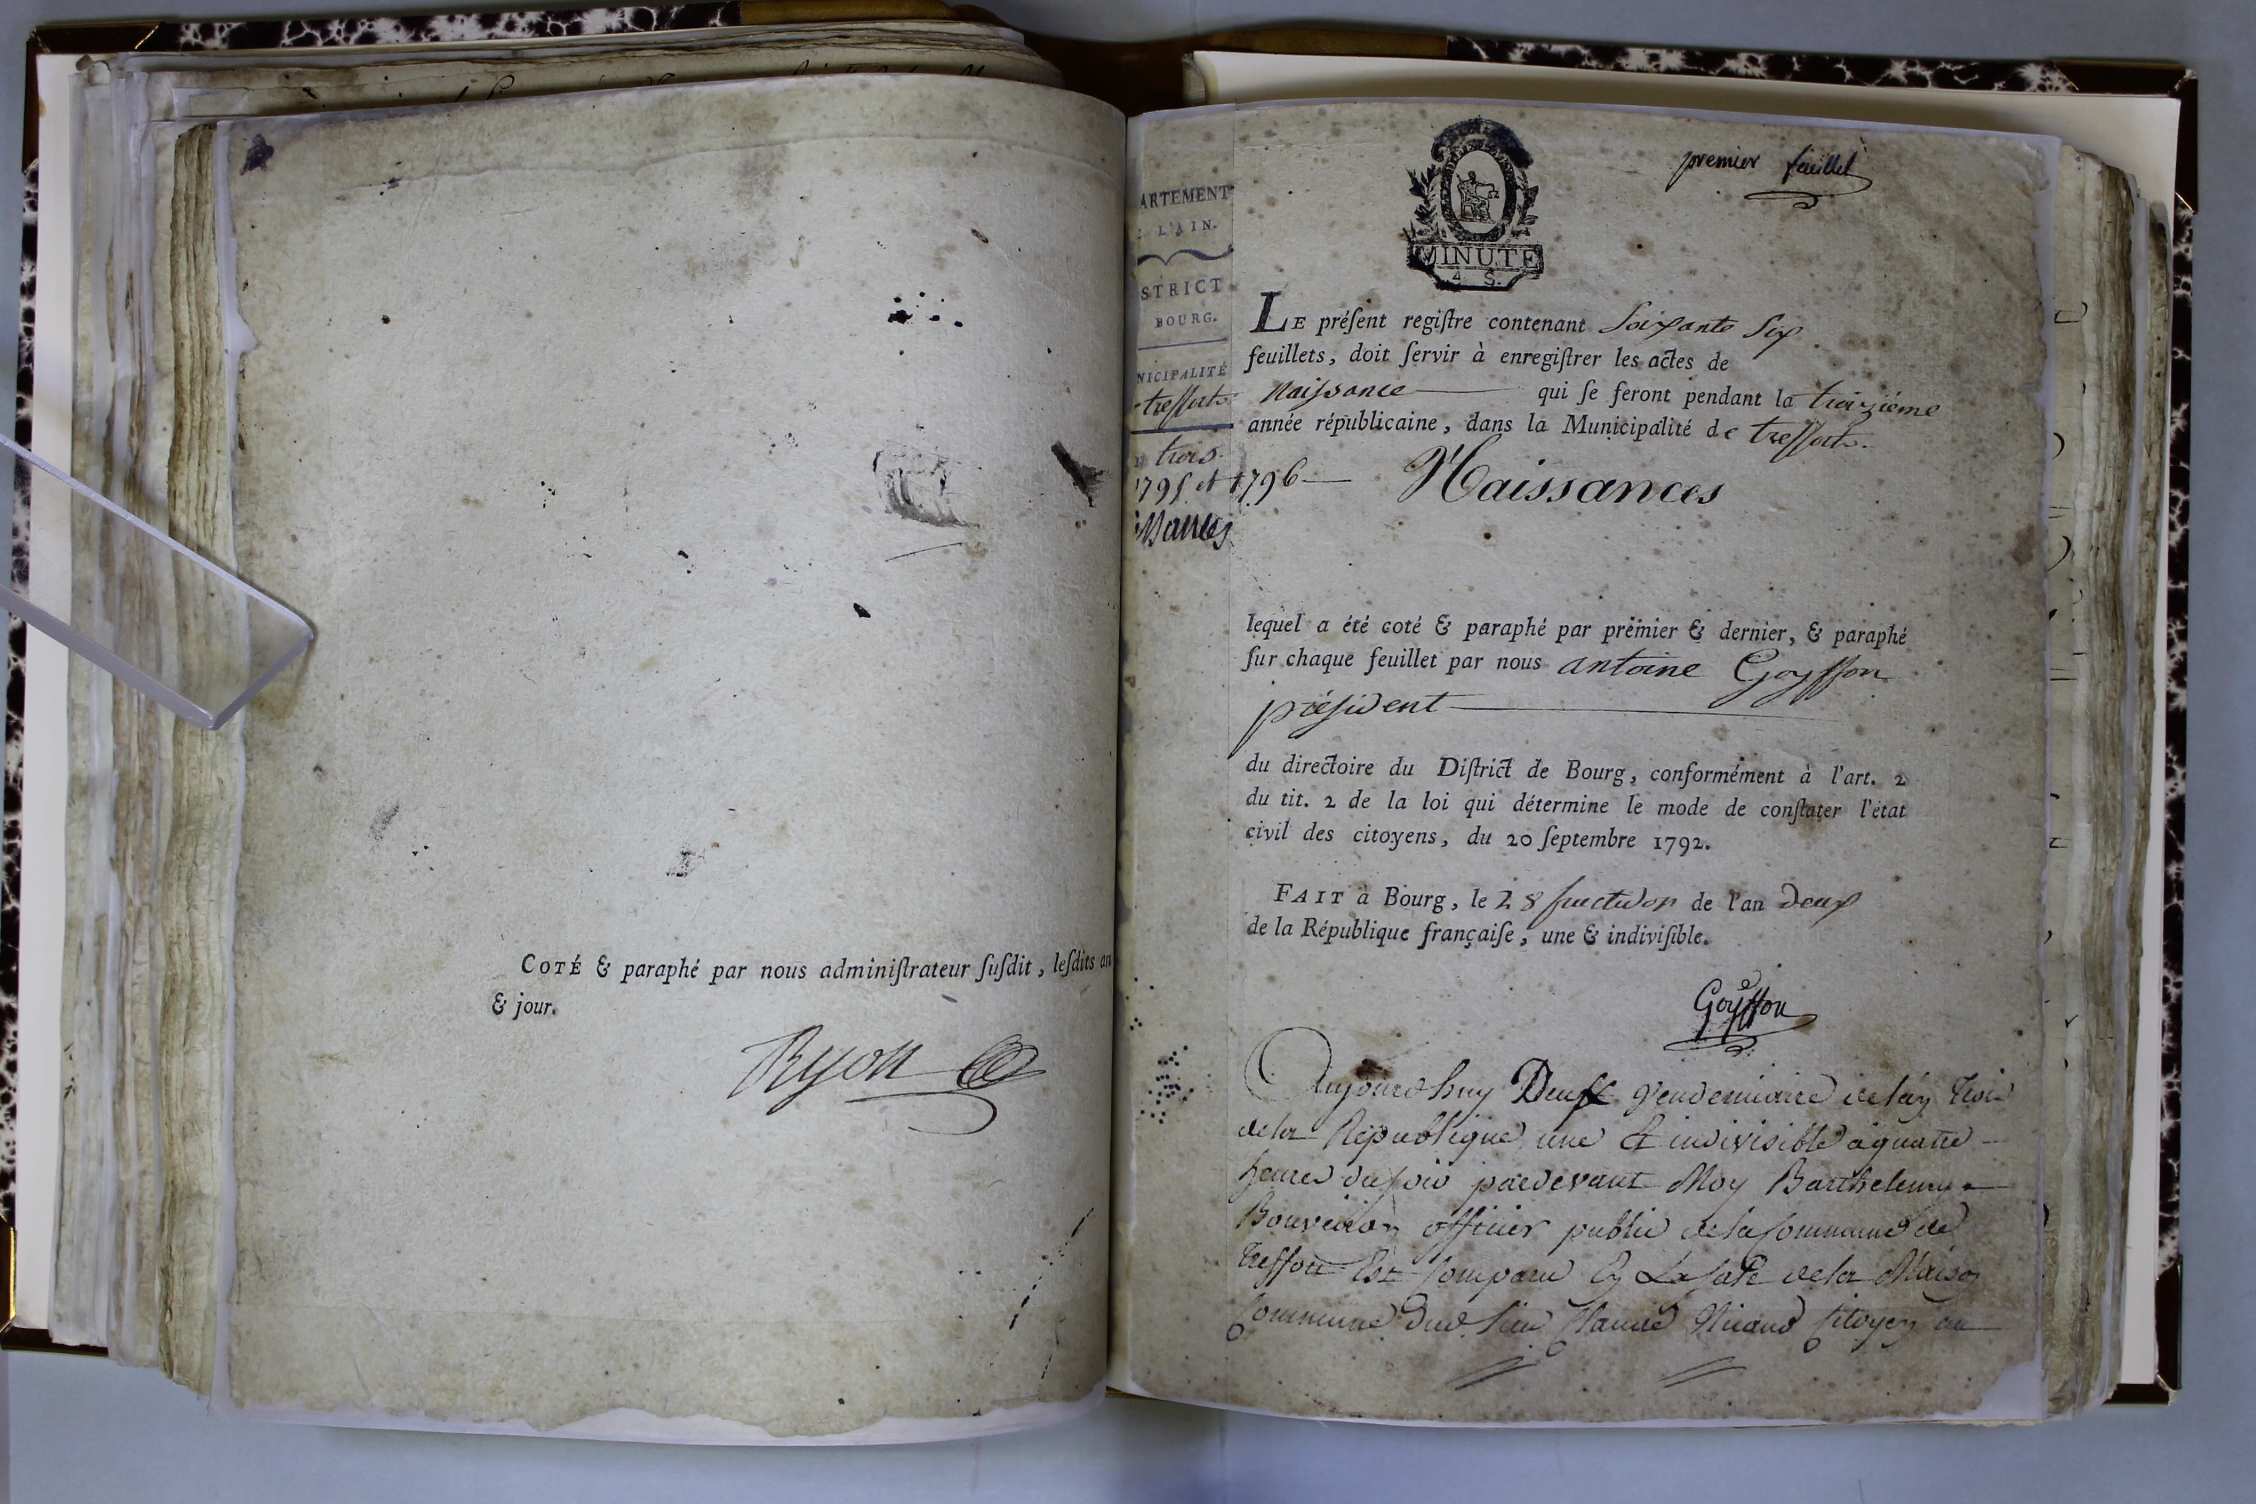 COTÉ & paraphé par nous adminiſtrateur ſuſdit, leſdits an
& jour.
Ryon
premier feuillet
MINUTE
4 S.
ARTEMENT
L'AIN.
STRICT
BOURG.
NICIPALITÉ
treffort
trois
1795 et 1796
Naissances
LE préſent regiſtre contenant Soixante Six
feuillets, doit ſervir à enregiſtrer les actes de
Naissance qui ſe feront pendant la troizième
année républicaine, dans la Municipalité de treffort.
Naissances
lequel a été coté & paraphé par premier & dernier, & paraphé
ſur chaque feuillet par nous antoine Goyffon
président
du directoire du Diſtrict de Bourg, conformément à l'art. 2
du tit. 2 de la loi qui détermine le mode de conſtater l'état
civil des citoyens, du 20 ſeptembre 1792.
FAIT à Bourg, le 28 fructidor de l'an deux
de la République françaiſe, une & indiviſible.
Goyffon
Aujourdhuy Deux Vendemiaire de lan trois
dela Republique une et indivisible a quatre
heures du soir pardevant Moy Barthelemy
Bouveiron officier public dela Commune de
treffort Est Comparu En La sale dela Maison
Commune dud. lieu Claude Nicand Citoyen